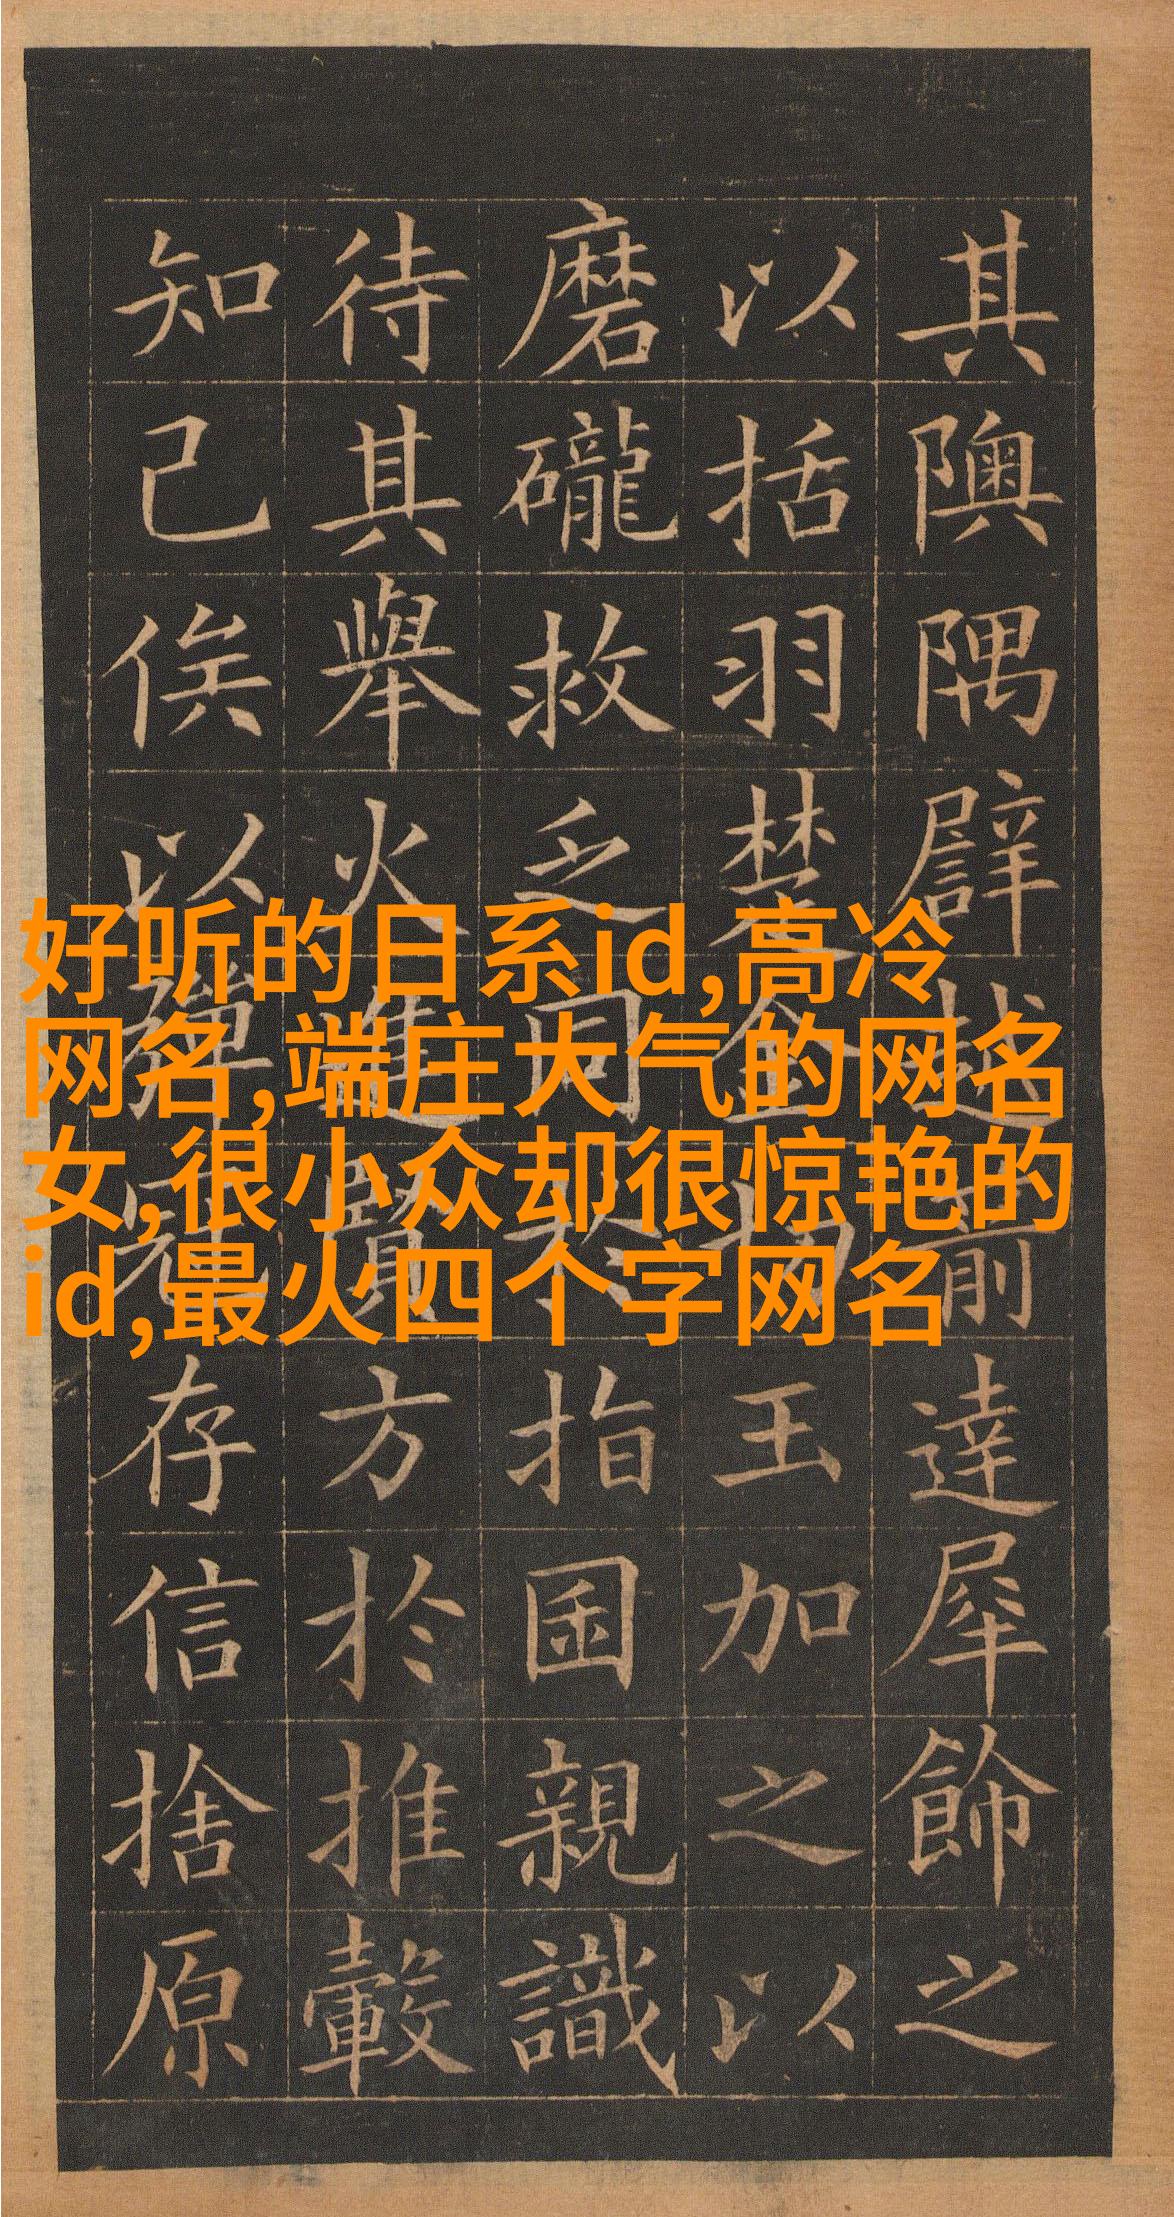 其隩隅譬越箭達犀飾之
以括羽楚金切王加之以
磨礲救乏同指囷親識
待其舉火進賢方於推轂
知己俟以彈冠存信捨原
好听的日系id,高冷
网名,端庄大气的网名
女,很小众却很惊艳的
id,最火四个字网名